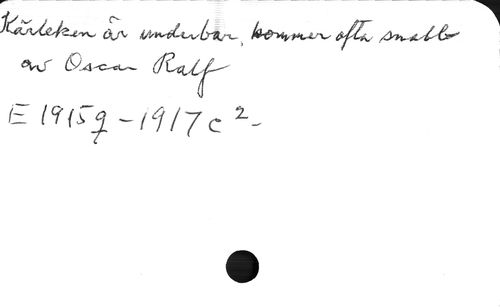 Kärleken är underbar, kommer ofta snabbt
av Oscar Ralf
E 1915g - 1917 c² -